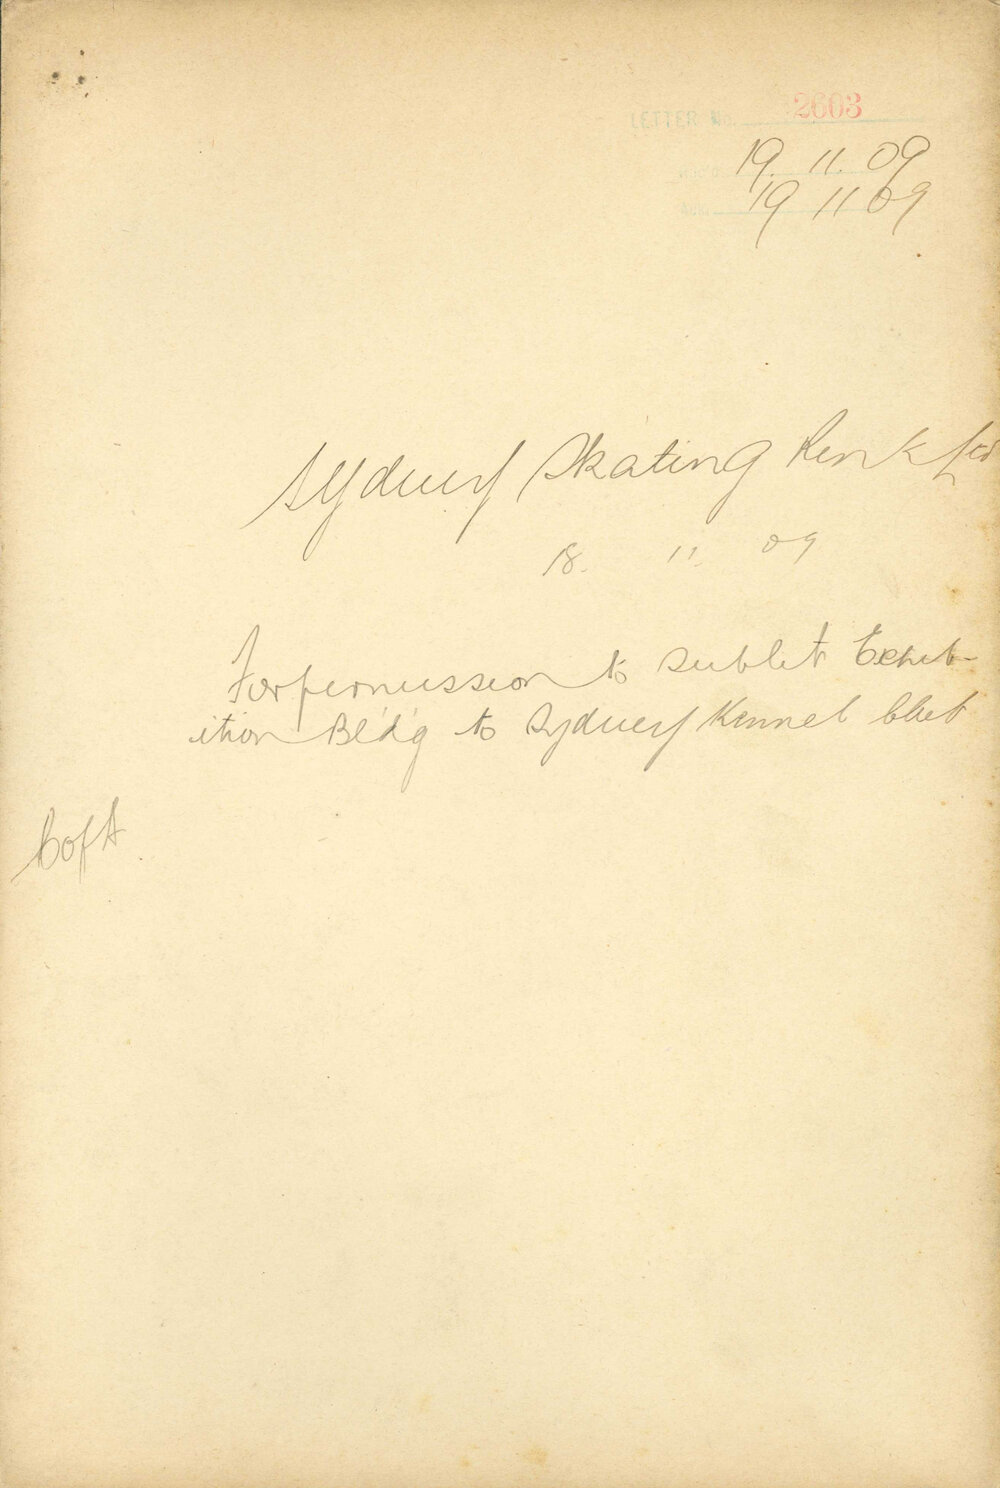 LETTER No. 2603
19. 11. 09
19 11 09
Sydney Skating Rink Ltd
18. 11. 09
For permission to sublet Exhib-
ition Bldg to Sydney Kennel Club
C of A